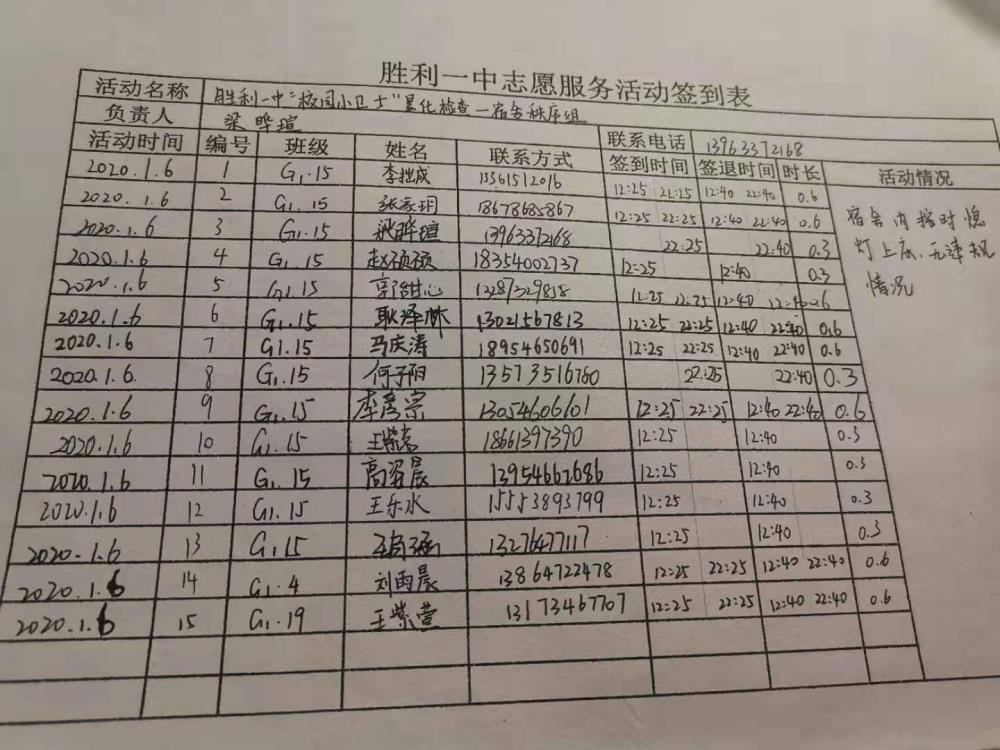 胜利一中志愿服务活动签到表
活动名称 胜利一中"校园小卫士"量化检查—宿舍秩序组
负责人 梁晔瑄 联系电话 13963372168
活动时间 编号 班级 姓名 联系方式 签到时间 签退时间 时长 活动情况
2020.1.6 1 G1.15 李拙成 15561512016 12:25 22:25 12:40 22:40 0.6
2020.1.6 2 G1.15 张家玥 18678685867 12:25 22:25 12:40 22:40 0.6
2020.1.6 3 G1.15 梁晔瑄 13963372168 22:25 22:40 0.3
2020.1.6 4 G1.15 赵硕硕 18354002737 12:25 12:40 0.3
2020.1.6 5 G1.15 郭甜心 13287329818 12:25 22:25 12:40 0.6
2020.1.6 6 G1.15 耿泽林 13021567813 12:25 22:25 12:40 22:40 0.6
2020.1.6 7 G1.15 马庆涛 18954650691 12:25 22:25 12:40 22:40 0.6
2020.1.6 8 G1.15 何子阳 13573516780 22:25 22:40 0.3
2020.1.6 9 G1.15 李彦宗 13054606601 12:25 22:25 12:40 22:40 0.6
2020.1.6 10 G1.15 18661397390 12:25 12:40 0.3
2020.1.6 11 G1.15 高姿晨 13954662686 12:25 12:40 0.3
2020.1.6 12 G1.15 王乐水 15553893799 12:25 12:40 0.3
2020.1.6 13 G1.15 13276477117 12:25 12:40 0.3
2020.1.6 14 G1.4 刘雨晨 13864722478 12:25 22:25 12:40 22:40 0.6
2020.1.6 15 G1.19 王紫萱 13173467707 12:25 22:25 12:40 22:40 0.6
宿舍内按时熄
灯上床、无违规
情况